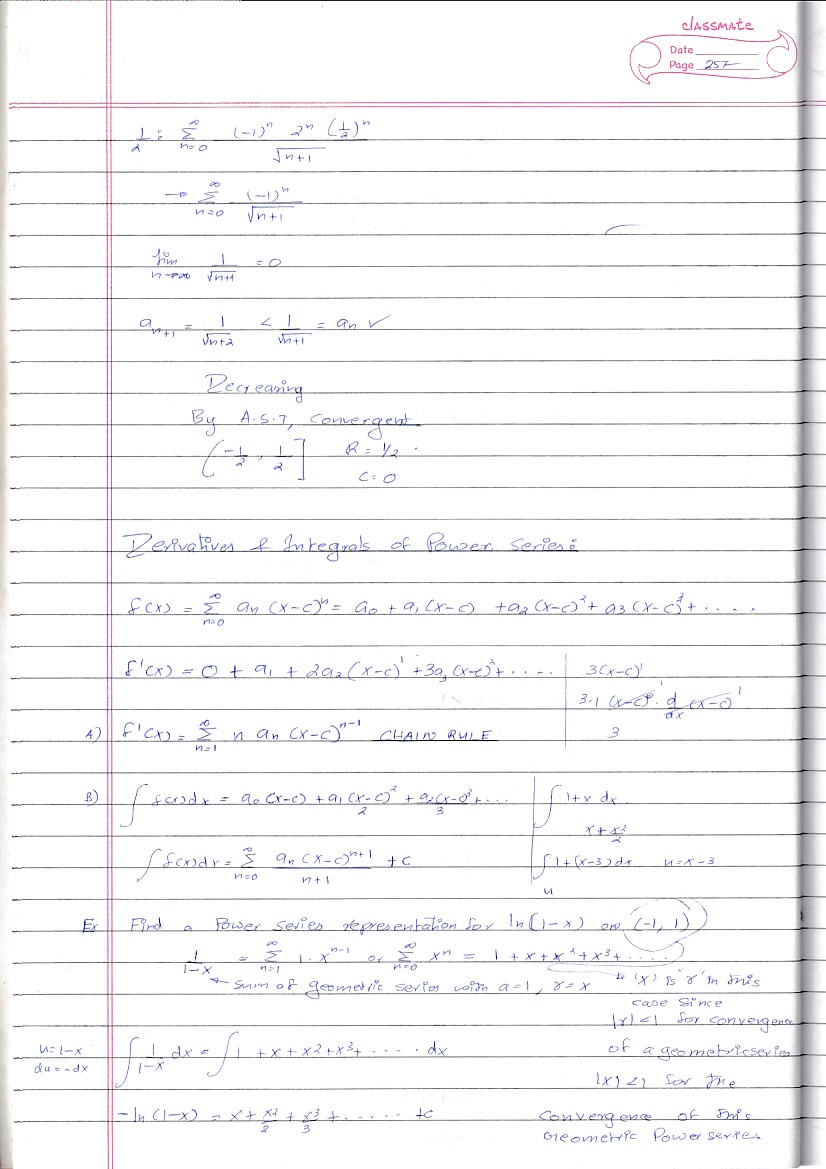 classmate
Date
Page 257
1/2 : ∞ Σ n=0 (-1)^n 2^n (1/2)^n / √n+1
→ ∞ Σ n=0 (-1)^n / √n+1
lim n→∞ 1/√n+1 = 0
a_n+1 = 1/√n+2 < 1/√n+1 = an ✓
Decreasing
By A.S.T, Convergent
(-1/2 , 1/2] R = 1/2 .
C = 0
Derivatives & Integrals of Power Series:
f(x) = ∞ Σ n=0 an (x-c)^n = a0 + a1 (x-c) + a2 (x-c)^2 + a3 (x-c)^3 + . . . .
f'(x) = 0 + a1 + 2a2 (x-c)^1 + 3a3 (x-c)^2 + . . . . 3(x-c)^1
3.1 (x-c)^0 . d/dx (x-c)^1
A) f'(x) = ∞ Σ n=1 n an (x-c)^n-1 CHAIN RULE 3
B) ∫ f(x)dx = a0 (x-c) + a1 (x-c)^2/2 + a2 (x-c)^3/3 + ... ∫ 1+x dx
x + x^2/2
∫ f(x)dx = ∞ Σ n=0 an (x-c)^n+1 / n+1 + c ∫ 1+(x-3)dx u = x-3
u
Ex Find a Power series representation for ln(1-x) on (-1, 1)
1/1-x = ∞ Σ n=1 1. x^n-1 or ∞ Σ n=0 x^n = 1 + x + x^2 + x^3 + . . . .
Sum of geometric series with a=1, r=x → (x) is 'r' in this
case since
|r| <1 for convergence
u = 1-x ∫ 1/1-x dx = ∫ 1 + x + x^2 + x^3 + . . . . . dx of a geometric series
du = -dx
|x| <1 for the
-ln (1-x) = x + x^2/2 + x^3/3 + . . . . . +c Convergence of this
Geometric Power series